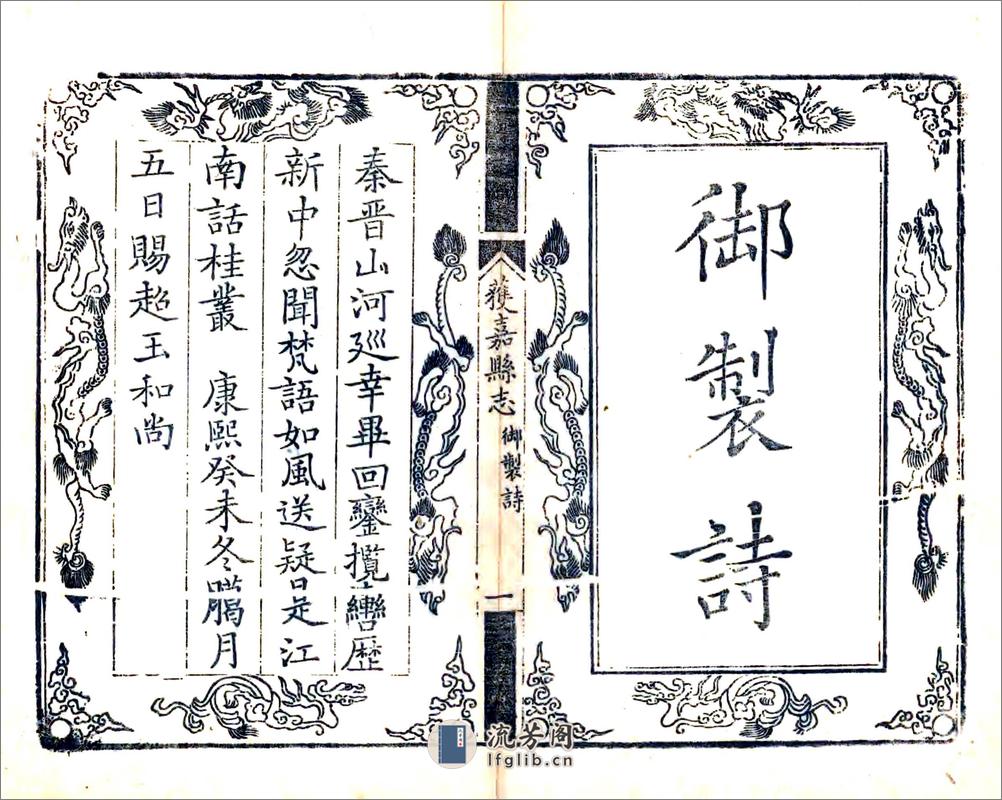 御製詩
獲嘉縣志 御製詩 一
秦晋山河廵幸畢回鑾攬轡歴
新中忽聞梵語如風送疑是江
南話桂叢 康熙癸未冬臘月
五日賜超玉和尚
流芳阁
lfglib.cn